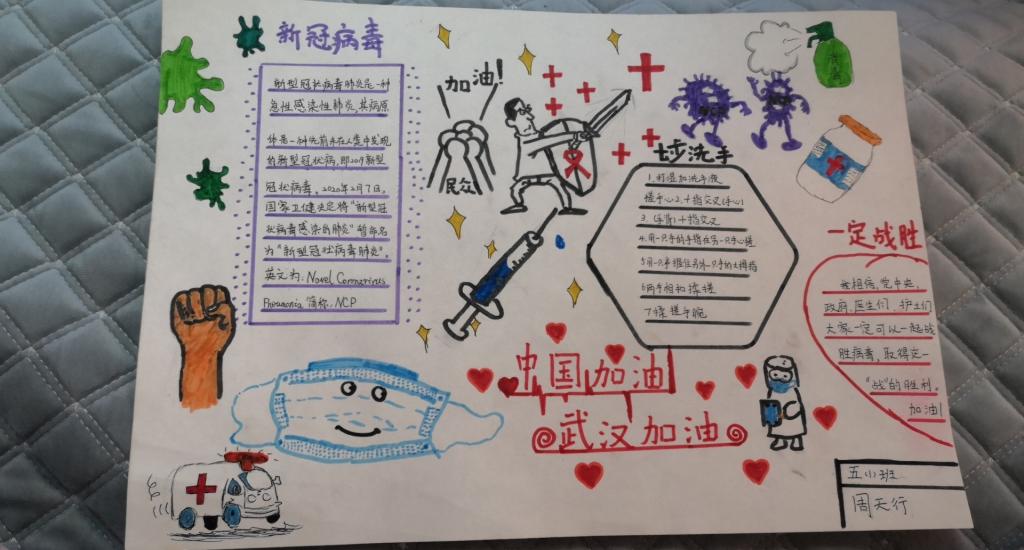 新冠病毒
新型冠状病毒肺炎是一种
急性感染性肺炎,其病原
体是一种先前未在人类中发现
的新型冠状病,即2019新型
冠状病毒。2020年2月7日,
国家卫健决定将“新型冠
状病毒感染的肺炎”暂命名
为“新型冠状病毒肺炎”
英文为:Novel Coronavirus
Pneumonia 简称:NCP
加油!
民众
七步洗手
1.打湿加洗手液
搓手心2.十指交叉(手心)
3.(手背)十指交叉
4.用一只手的手指在另一只手心搓
5.用一只手握住另外一只手的大拇指
6.两手相扣揉搓
7.揉搓手腕
中国加油
武汉加油
一定战胜
我相信,党中央,
政府,医生们,护士们
大家一定可以一起战
胜病毒,取得这一
“战”的胜利。
加油!
五小班
周天行